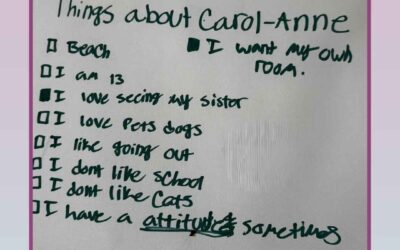 Things about Carol-Anne
□ Beach
■ I want my own room.
□ I am 13
■ I love seeing my sister
□ I love Pets dogs
□ I like going out
□ I dont like school
□ I dont like Cats
□ I have a attitude sometimes